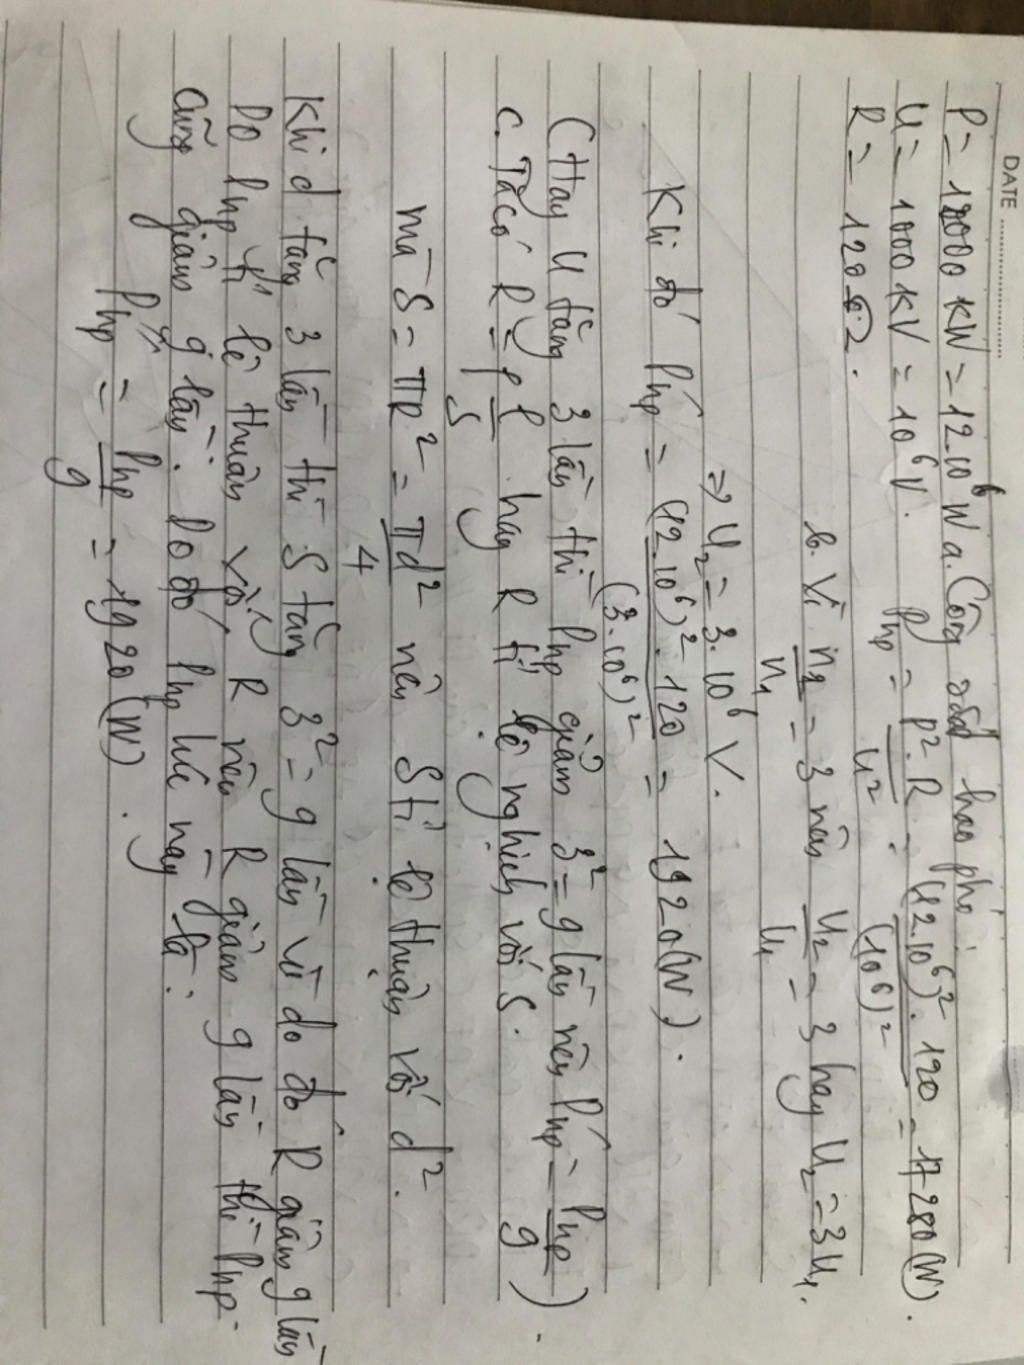 DATE
P = 12000 KW = 12.10⁶ W a. Công suất hao phí
U = 1000 KV = 10⁶ V. Php = P².R / U² = (12.10⁶)².120 / (10⁶)² = 17280 (W).
R = 120 Ω.
b. Vì n₂/n₁ = 3 nên U₂/U₁ = 3 hay U₂ = 3U₁.
⇒ U₂ = 3.10⁶ V.
Khi đó P'hp = (12.10⁶)².120 / (3.10⁶)² = 1920 (W).
(Hay U tăng 3 lần thì Php giảm 3² = 9 lần nên P'hp = Php/9).
c. Ta có R = ρl/S hay R tỉ lệ nghịch với S.
mà S = πR² = πd²/4 nên S tỉ lệ thuận với d².
Khi d tăng 3 lần thì S tăng 3² = 9 lần do đó R giảm 9 lần
Do Php tỉ lệ thuận với R nên R giảm 9 lần thì Php
cũng giảm 9 lần. Do đó Php lúc này là:
P''hp = Php/9 = 1920 (W).